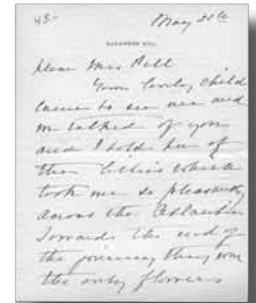 43-
May 28th
Dear Mrs Bell
Your lovely child
came to see me and
we talked of you
and I told her of
the lilies which
took me so pleasantly
across the Atlantic
Towards the end of
the journey they were
the only flowers